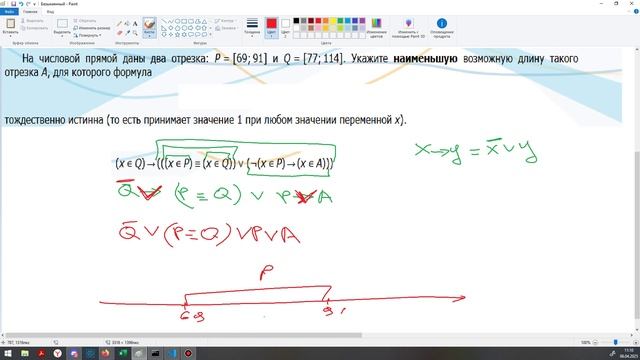 Безымянный - Paint
Файл Главная Вид
Вставить
Выделить
Кисти
Фигуры
Толщина
Цвет 1
Цвет 2
Изменение цветов
Изменить с помощью Paint 3D
Оповещение о продукте
Буфер обмена Изображение Инструменты Фигуры Цвета
На числовой прямой даны два отрезка: P = [69; 91] и Q = [77; 114]. Укажите наименьшую возможную длину такого
отрезка A, для которого формула
тождественно истинна (то есть принимает значение 1 при любом значении переменной x).
(x ∈ Q) → (((x ∈ P) ≡ (x ∈ Q)) ∨ (¬(x ∈ P) → (x ∈ A)))
x→y = x̄ ∨ y
Q̄ ∨ (P ≡ Q) ∨ P ∨ A
Q̄ ∨ (P ≡ Q) ∨ P ∨ A
P
69 9
100%
11:10
06.04.2025